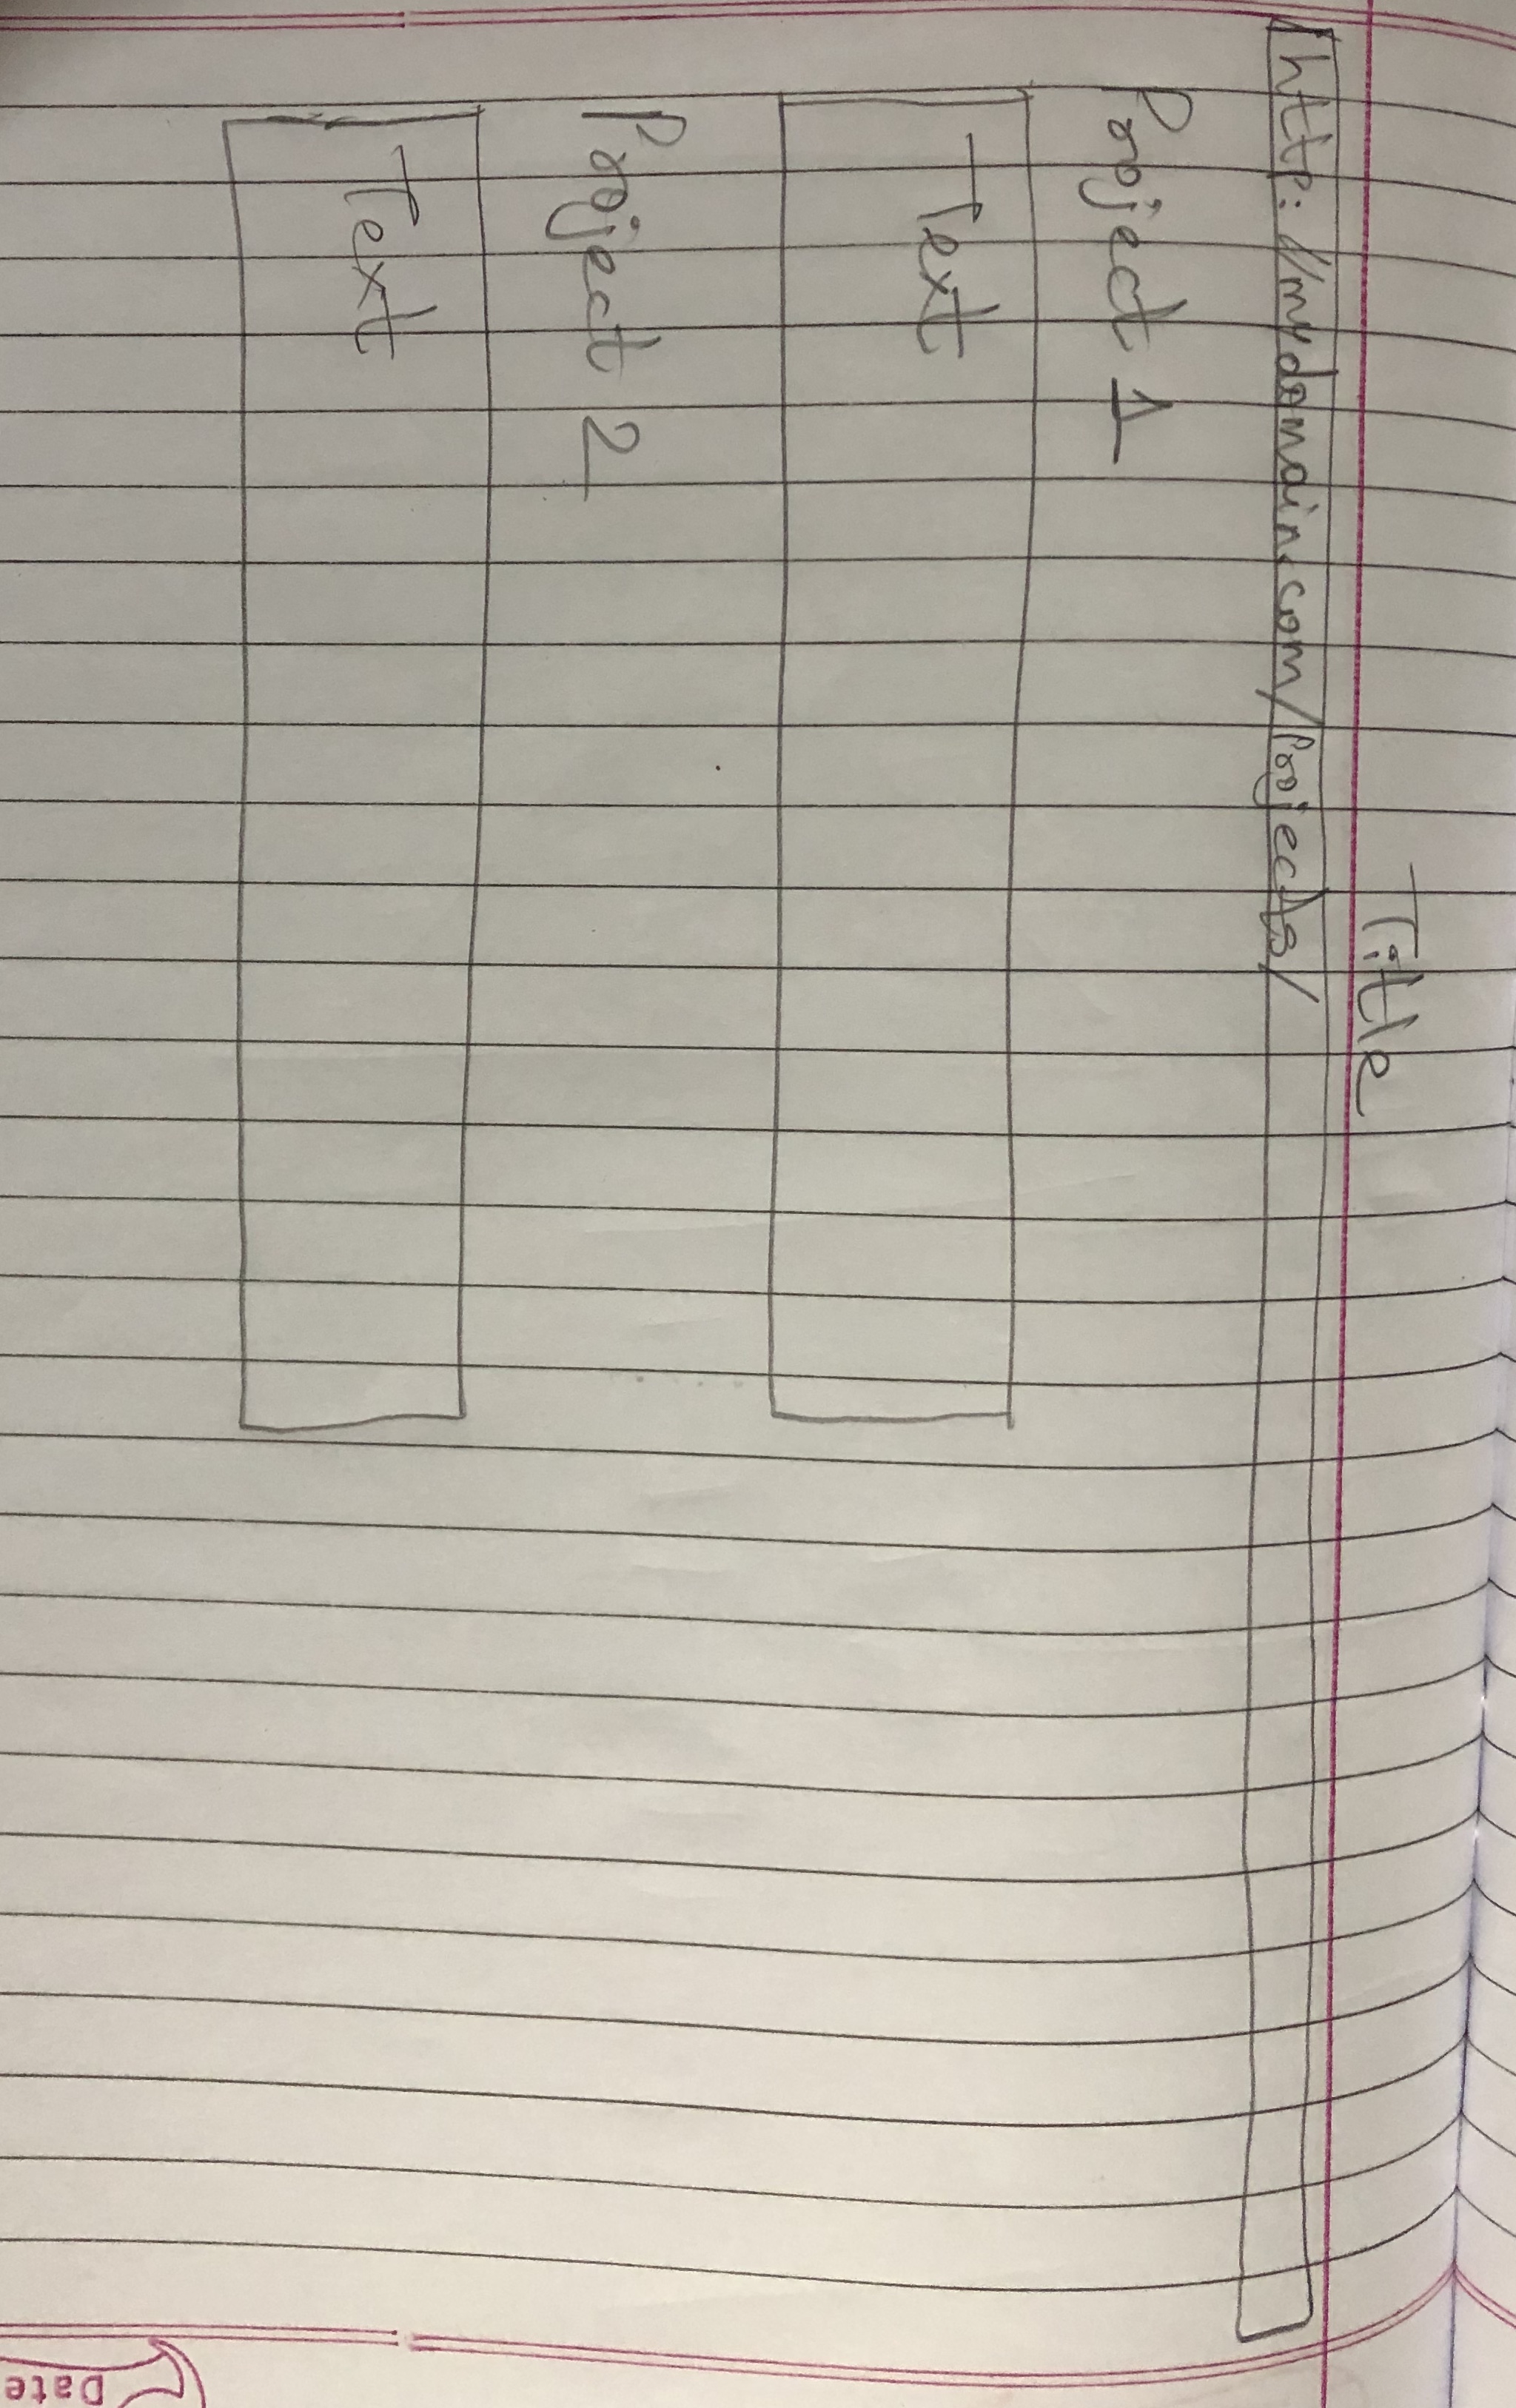 Title
http://mydomain.com/Projects/
Project 1
Text
Project 2
Text
Date